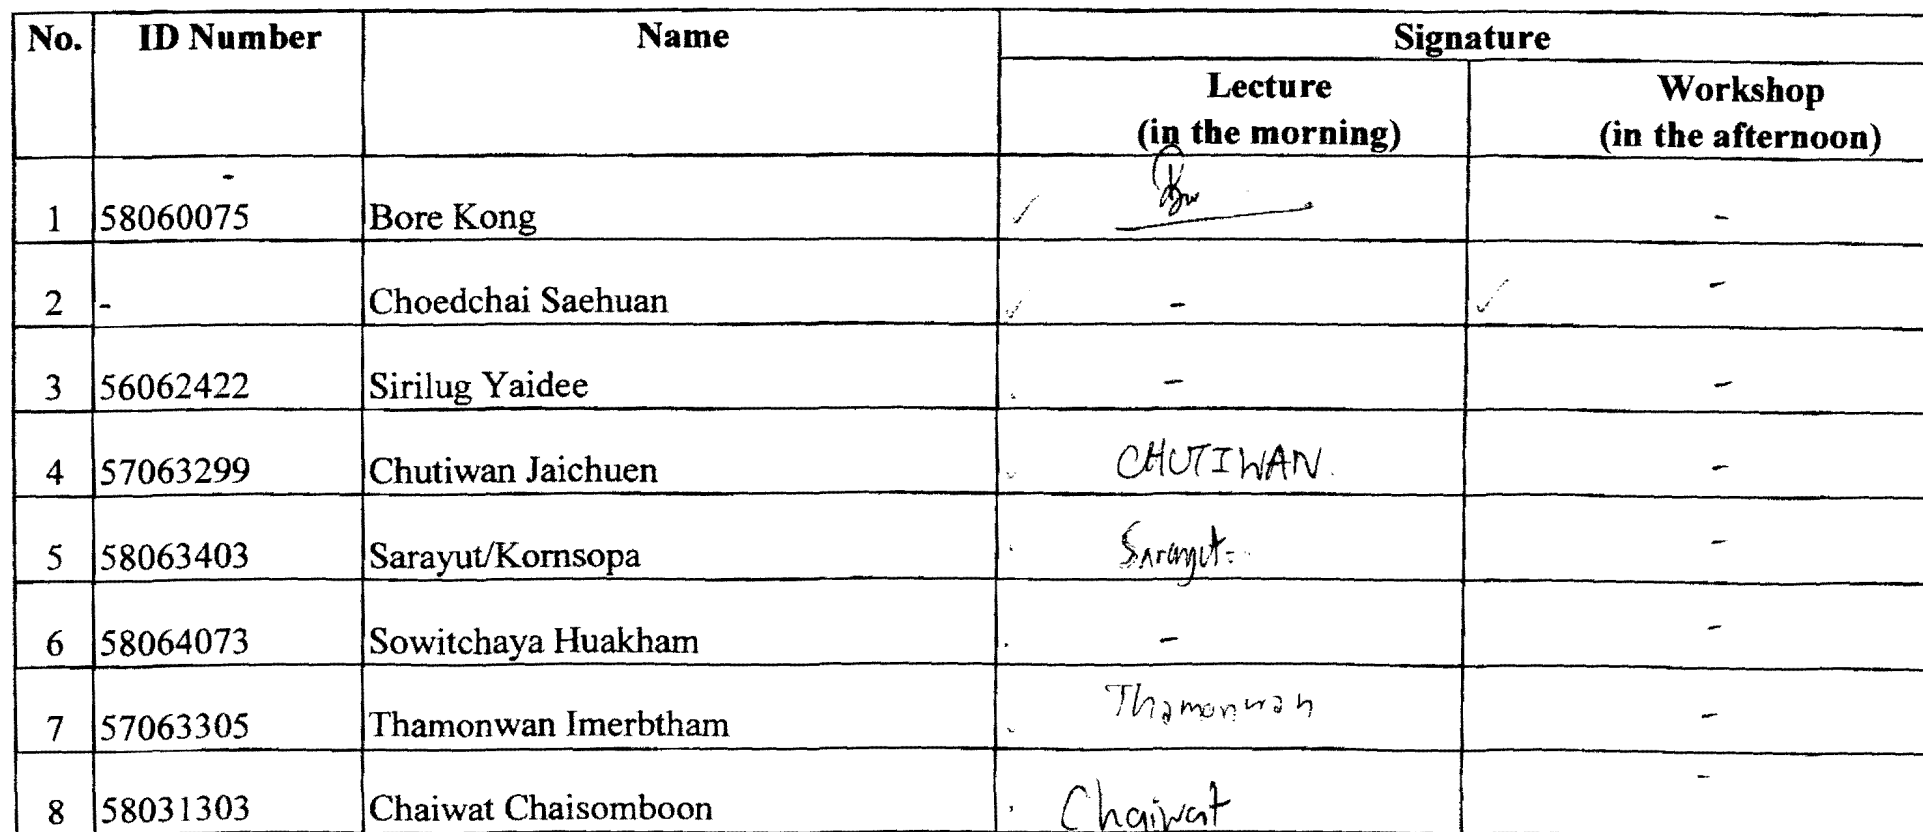 No. ID Number Name Signature
Lecture Workshop
(in the morning) (in the afternoon)
-
1 58060075 Bore Kong ✓ -
2 - Choedchai Saehuan ✓ - ✓ -
3 56062422 Sirilug Yaidee - -
4 57063299 Chutiwan Jaichuen CHUTIWAN. -
5 58063403 Sarayut/Kornsopa Sarayut -
6 58064073 Sowitchaya Huakham - -
7 57063305 Thamonwan Imerbtham Thamonwan -
8 58031303 Chaiwat Chaisomboon Chaiwat -